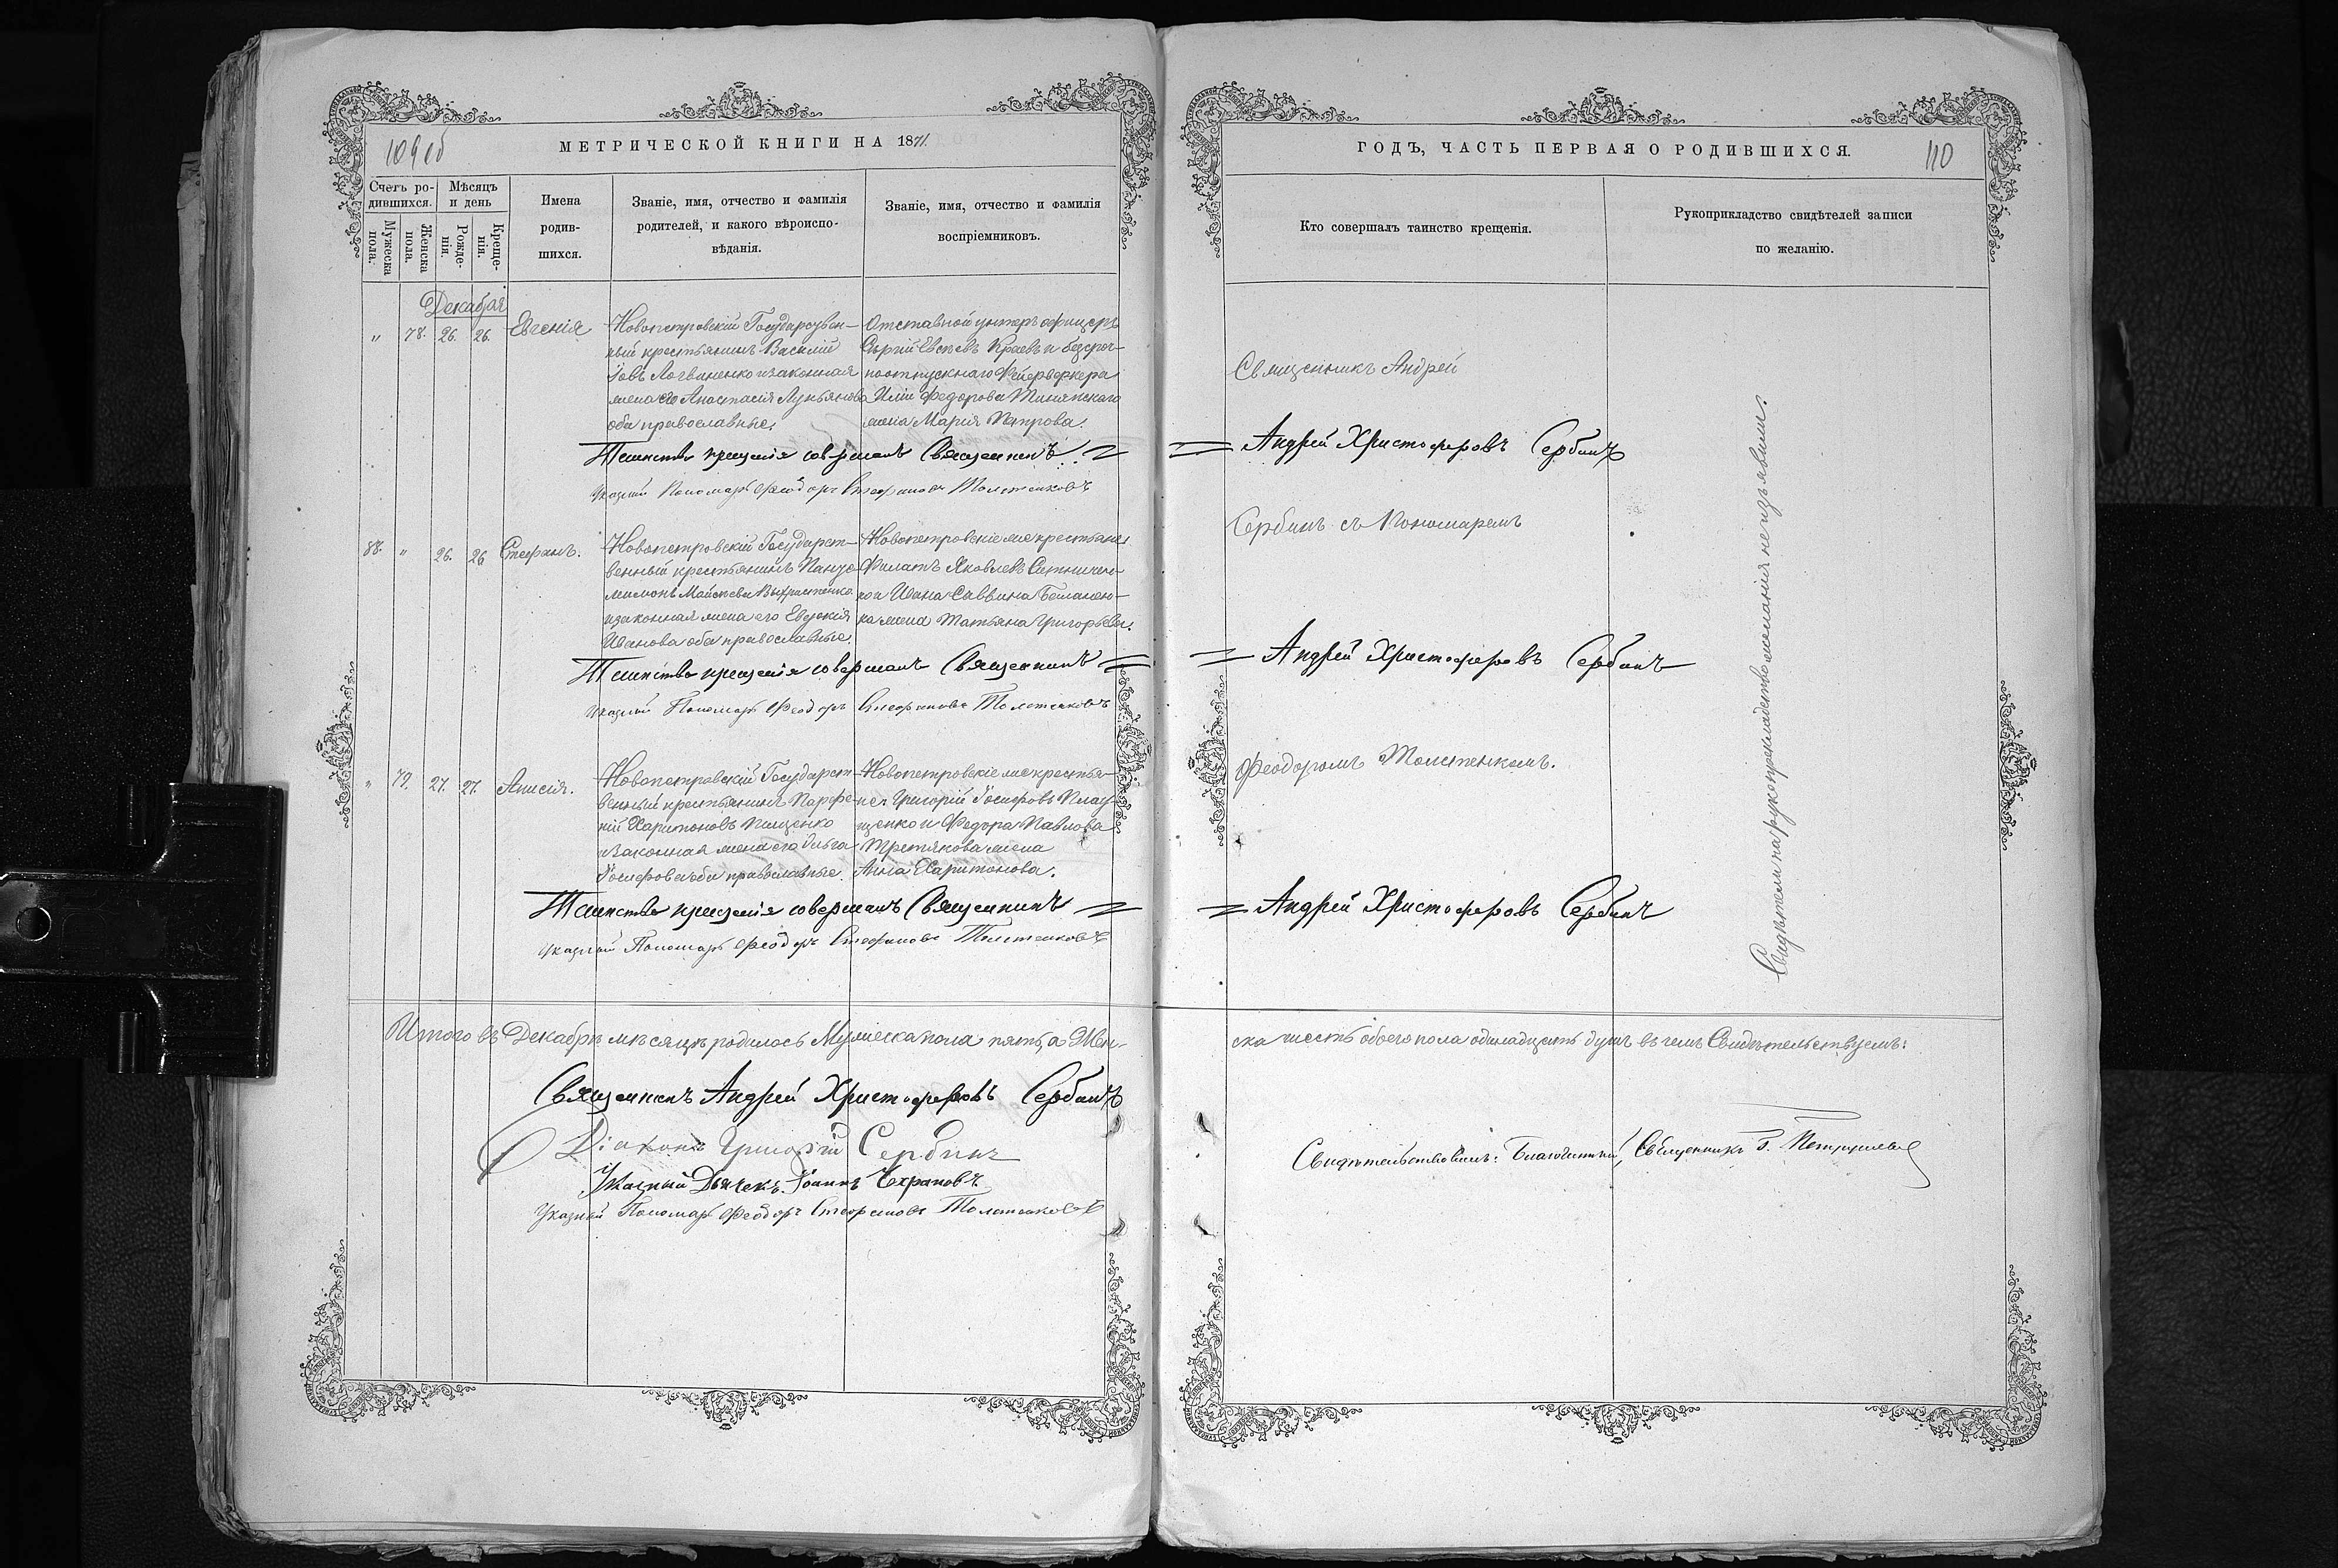 109 об
МЕТРИЧЕСКОЙ КНИГИ НА 1871.
Счетъ ро-
дившихся.
Мужеска
пола.
Женска
пола.
Мѣсяцъ
и день
Рожде-
нія.
Креще-
нія.
Имена
родив-
шихся.
Званіе, имя, отчество и фамилія
родителей, и какого вѣроиспо-
вѣданія.
Званіе, имя, отчество и фамилія
воспріемниковъ.
Декабря
" 78. 26. 26. Евгенія
Новопетровскій Государствен-
ный крестьянинъ Василій
Іовъ Логвиненко и законная
жена его Анастасія Лукьянова
оба православные.
Отставной унтеръ офицеръ
Сергій Евсѣевъ Краевъ и безсроч-
ноотпускнаго Фейерверкера
Иліи Федорова
жена Марія Петрова.
Таинство крещенія совершалъ Священникъ
Указный Пономарь Феодоръ Стефановъ Толстенковъ
88. " 26. 26 Стефанъ.
Новопетровскій Государст-
венный крестьянинъ Панте-
лимонъ
и законная жена его Евдокія
Иванова оба православные.
Новопетровскіе же крестьяне
Филатъ Яковлевъ Ситничен-
ко и Ивана Саввина
ка жена Татьяна Григорьева.
Таинство крещенія совершалъ Священникъ
Указный Пономарь Феодоръ Стефановъ Толстенковъ
" 79. 27. 27. Анисія.
Новопетровскій Государст-
венный крестьянинъ Парфе-
ній Харитоновъ Пищенко
и законная жена его Ольга
Іосифова оба православные.
Новопетровскіе же крестья-
не Григорій Іосифовъ Плау-
щенко и Федора Павлова
Третякова жена
Анна Харитонова.
Таинство крещенія совершалъ Священникъ
Указный Пономарь Феодоръ Стефановъ Толстенковъ
Итого въ Декабрѣ мѣсяцѣ родилось Мужеска пола пять, а Жен-
Священникъ Андрей Христофоровъ Сербинъ
Діаконъ Григорій Сербинъ
Указный Дьячекъ Іоаннъ Чехрановъ
Указный Пономарь Феодоръ Стефановъ Толстенковъ
ГОДЪ, ЧАСТЬ ПЕРВАЯ О РОДИВШИХСЯ.
110
Кто совершалъ таинство крещенія.
Рукоприкладство свидѣтелей записи
по желанію.
Священникъ Андрей
Андрей Христофоровъ Сербинъ
Сербинъ съ Пономаремъ
Андрей Христофоровъ Сербинъ
Феодоромъ Толстенкомъ.
Андрей Христофоровъ Сербинъ
Свидѣтели на рукоприкладство желанія не изъявили.
ска шесть обоего пола одинадцать душъ въ чемъ Свидѣтельствуемъ:
Свидѣтельствовалъ: Благочинный, Священникъ